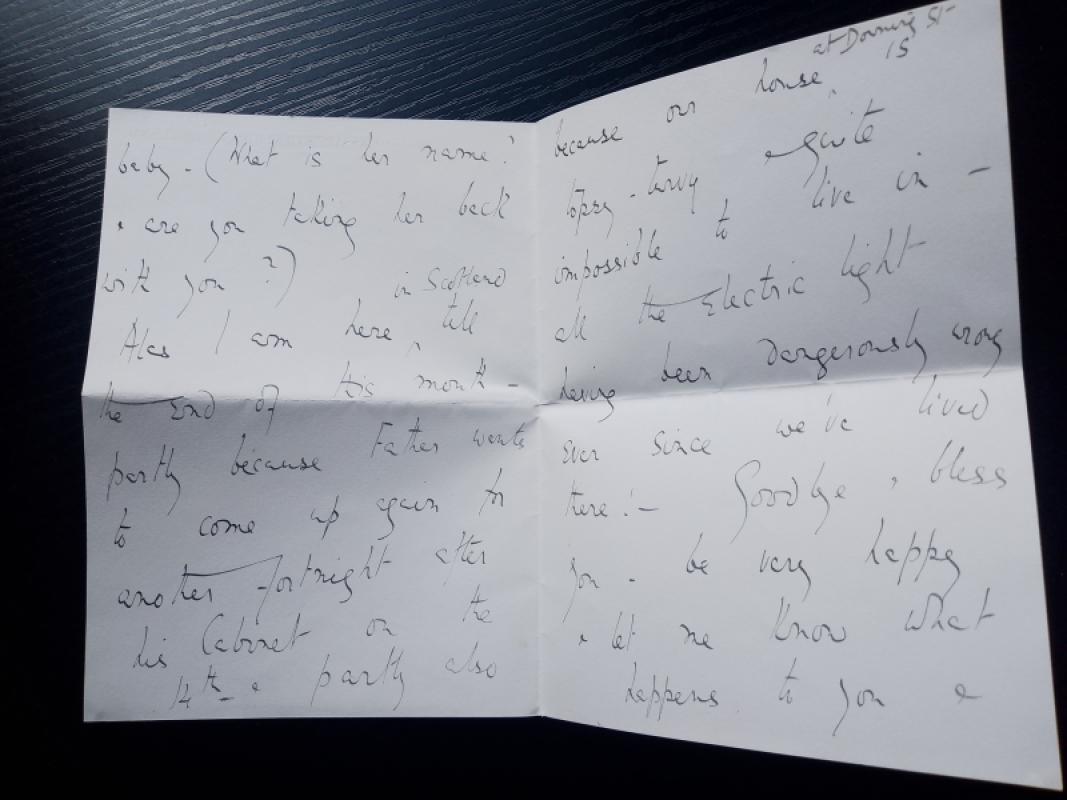 baby - (What is her name?
& are you taking her back
with you?)
in Scotland
Alas I am here, till
the End of this month -
partly because Father wants
to come up again for
another fortnight after
his Cabinet on the
14th & partly also
at Downing St
because our house, is
topsy-turvy & quite
impossible to live in -
all the Electric light
having been dangerously wrong
Ever since we've lived
there! - Goodbye, bless
you - be very happy
& let me know what
happens to you &